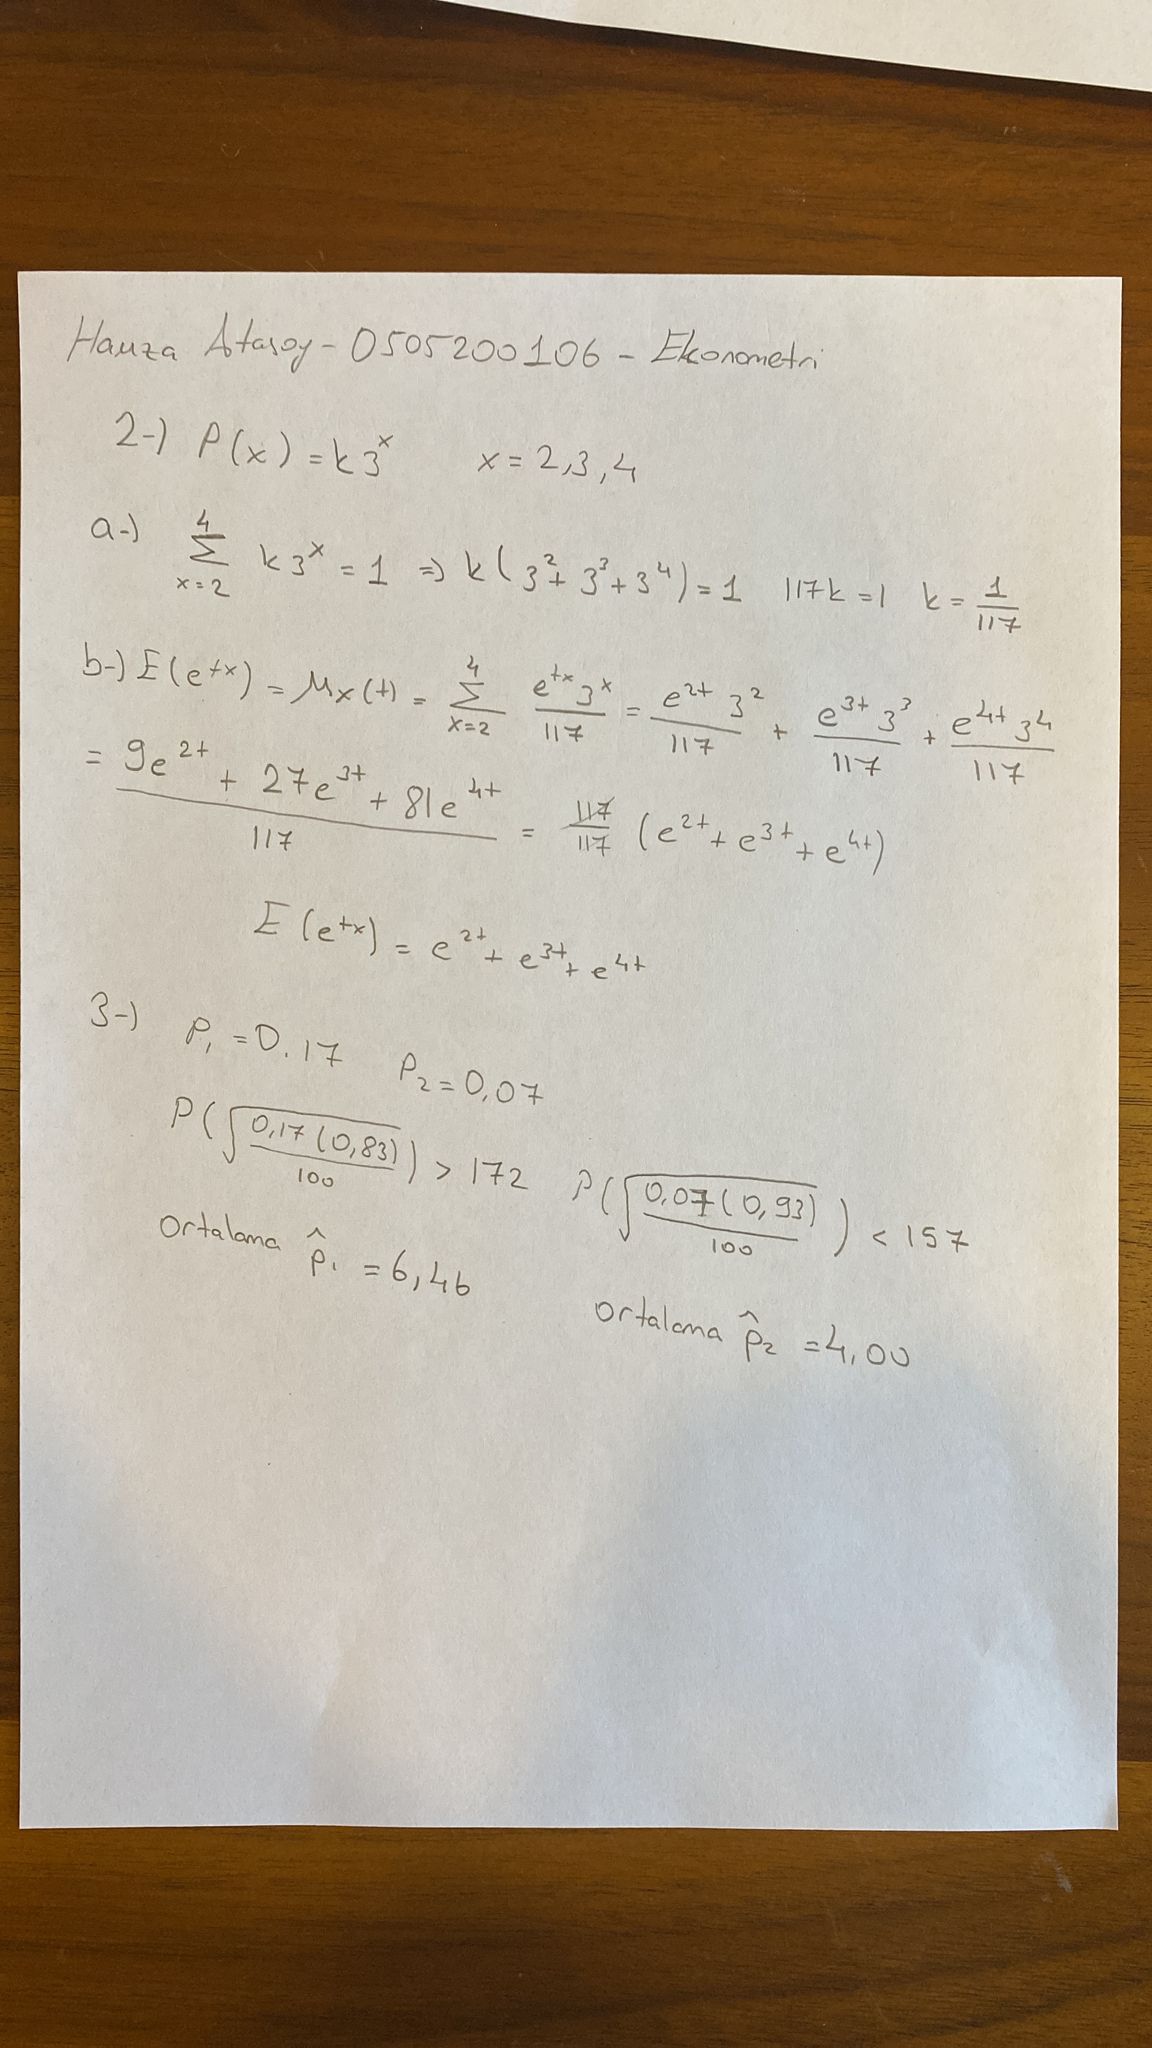 Hamza Atasoy - 0505200106 - Ekonometri
2-) P(x) = k3^x x = 2,3,4
a-) 4 Σ x=2 k3^x = 1 ⇒ k(3^2 + 3^3 + 3^4) = 1 117k = 1 k = 1/117
b-) E(e^tx) = Mx(t) = 4 Σ x=2 e^tx 3^x / 117 = e^2t 3^2 / 117 + e^3t 3^3 / 117 + e^4t 3^4 / 117
= 9e^2t + 27e^3t + 81e^4t / 117 = 117/117 (e^2t + e^3t + e^4t)
E(e^tx) = e^2t + e^3t + e^4t
3-) P₁ = 0.17 P₂ = 0,07
P(√0,17(0,83)/100) > 172 P(√0,07(0,93)/100) < 157
Ortalama p̂₁ = 6,46 Ortalama p̂₂ = 4,00